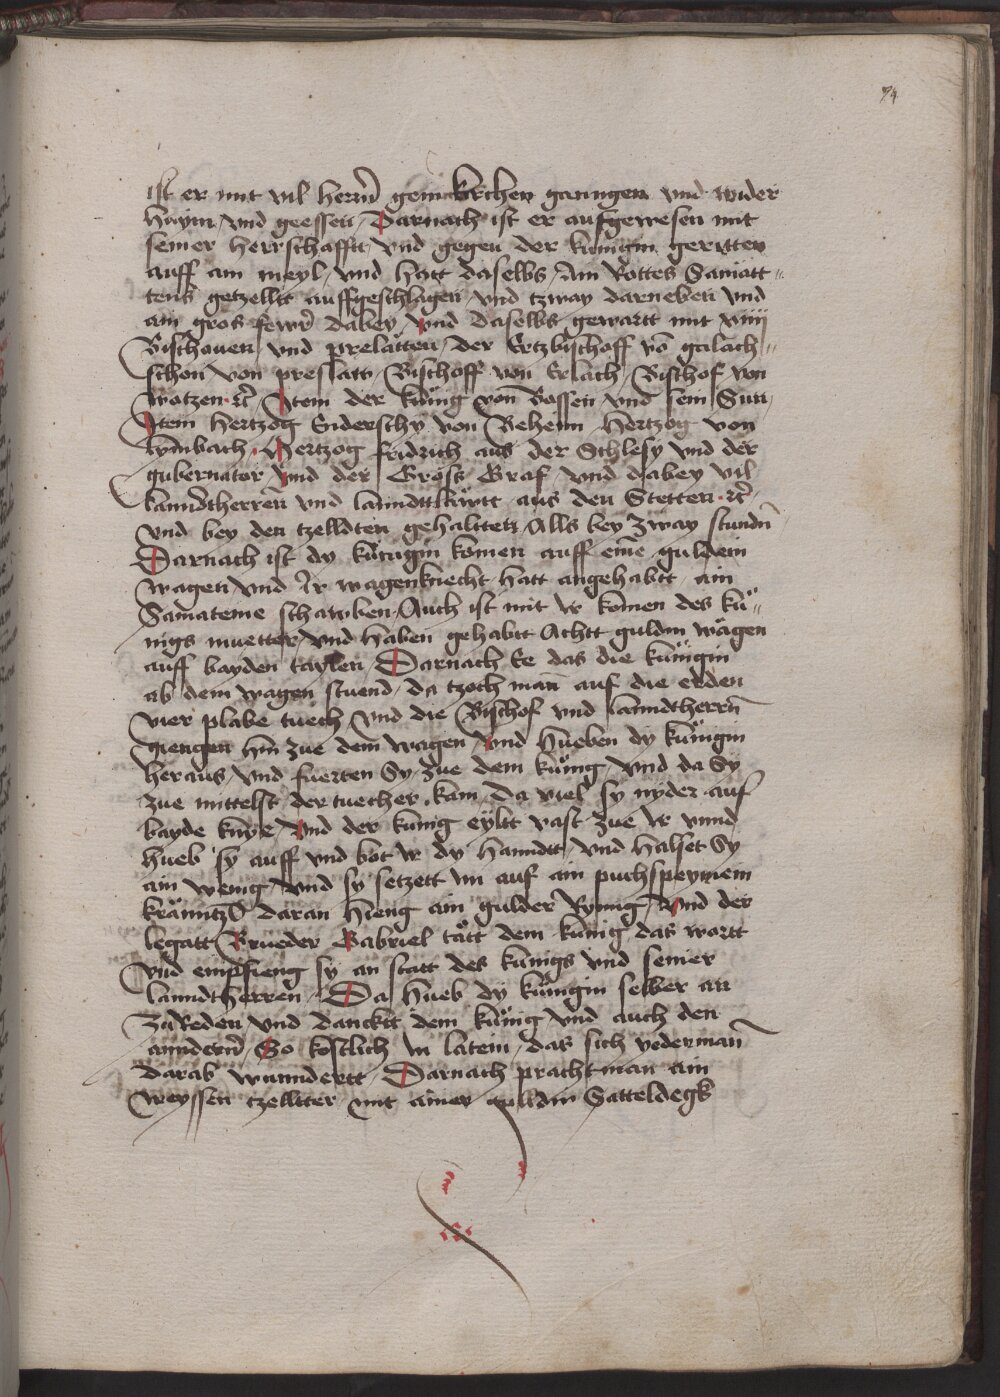 74
ist er mit vil herrn̄ gein kirchen ganngen vnd wider
haym, vnd geessen, Darnach ist er aufgewesen mit
seiner herrschafftt, vnd gegen der kunigin geritten
auff ain meyl, vnd hatt daselbs, Ain Rottes Samatt=
tens getzelltt auffgeschlagen, vnd tzway darneben vnd
ain gros fewr̄ dabey, vnd daselbs gewartt mit viiij
Bischouen, vnd prelätten, Der Ertzbischoff vō gulach=
schon von preslaw, Bischoff von Erlach, Bischof von
watzen ꝛc̄, Item der kunig von Bossen vnd sein Sun,
Item hertzog Siderschy von Beheim hertzog von
hertzog fridrich aus der Schlesy vnd der
gubernator, vnd der Gröss Graf, vnd dabey vil
lanndtherren vnd lanndttläwtt aus den Stetten ꝛc̄,
vnd bey den tzelldten gehaltten, Alls bey zway stundn̄
Darnach ist dy kunigin komen auff eine guldein
wagen, vnd Ir wagenknecht hatt angehabtt ain
Samateine schawben, Auch ist mit Ir komen des kü=
nigs muetter, vnd haben gehabtt Achtt guldin wägen
auff bayden taylen, Darnach Ee das die kunigin
ab dem wagen stuend, da tzoch man̄ auf die erden
vier plabe tuech, vnd die Bischof vnd lanndtherrn̄
giengen hin zue dem wagen, vnd hueben dy kunigin
heraus vnd fuerten Sy, zue dem kunig, vnd da Sy
zue mittelst der tuecher kam, Da viel sy nyder auf
bayde knye, vnd der kunig eyltt vast zue Ir vnnd
hueb sy auff vnd bot Ir dy hanndtt, vnd halset Sy
ain wenig, vnd sy setzett im auf ain puchspeymein
daran hieng ain gulder Ryning, Vnd der
legatt Brueder Gabriel tätt dem kunig das wortt
vnd empfieng sy an statt des kunigs vnd seiner
lanndtherren, Da hueb dy kunigin selber an
zu Reden vnd danckt dem kunig vnd auch den
anndern̄, So kostlich in latein, das sich yederman̄
darab wunndertt, Darnach pracht man ain
weyssen tzelltter mit ainer gulldin Satteldegk